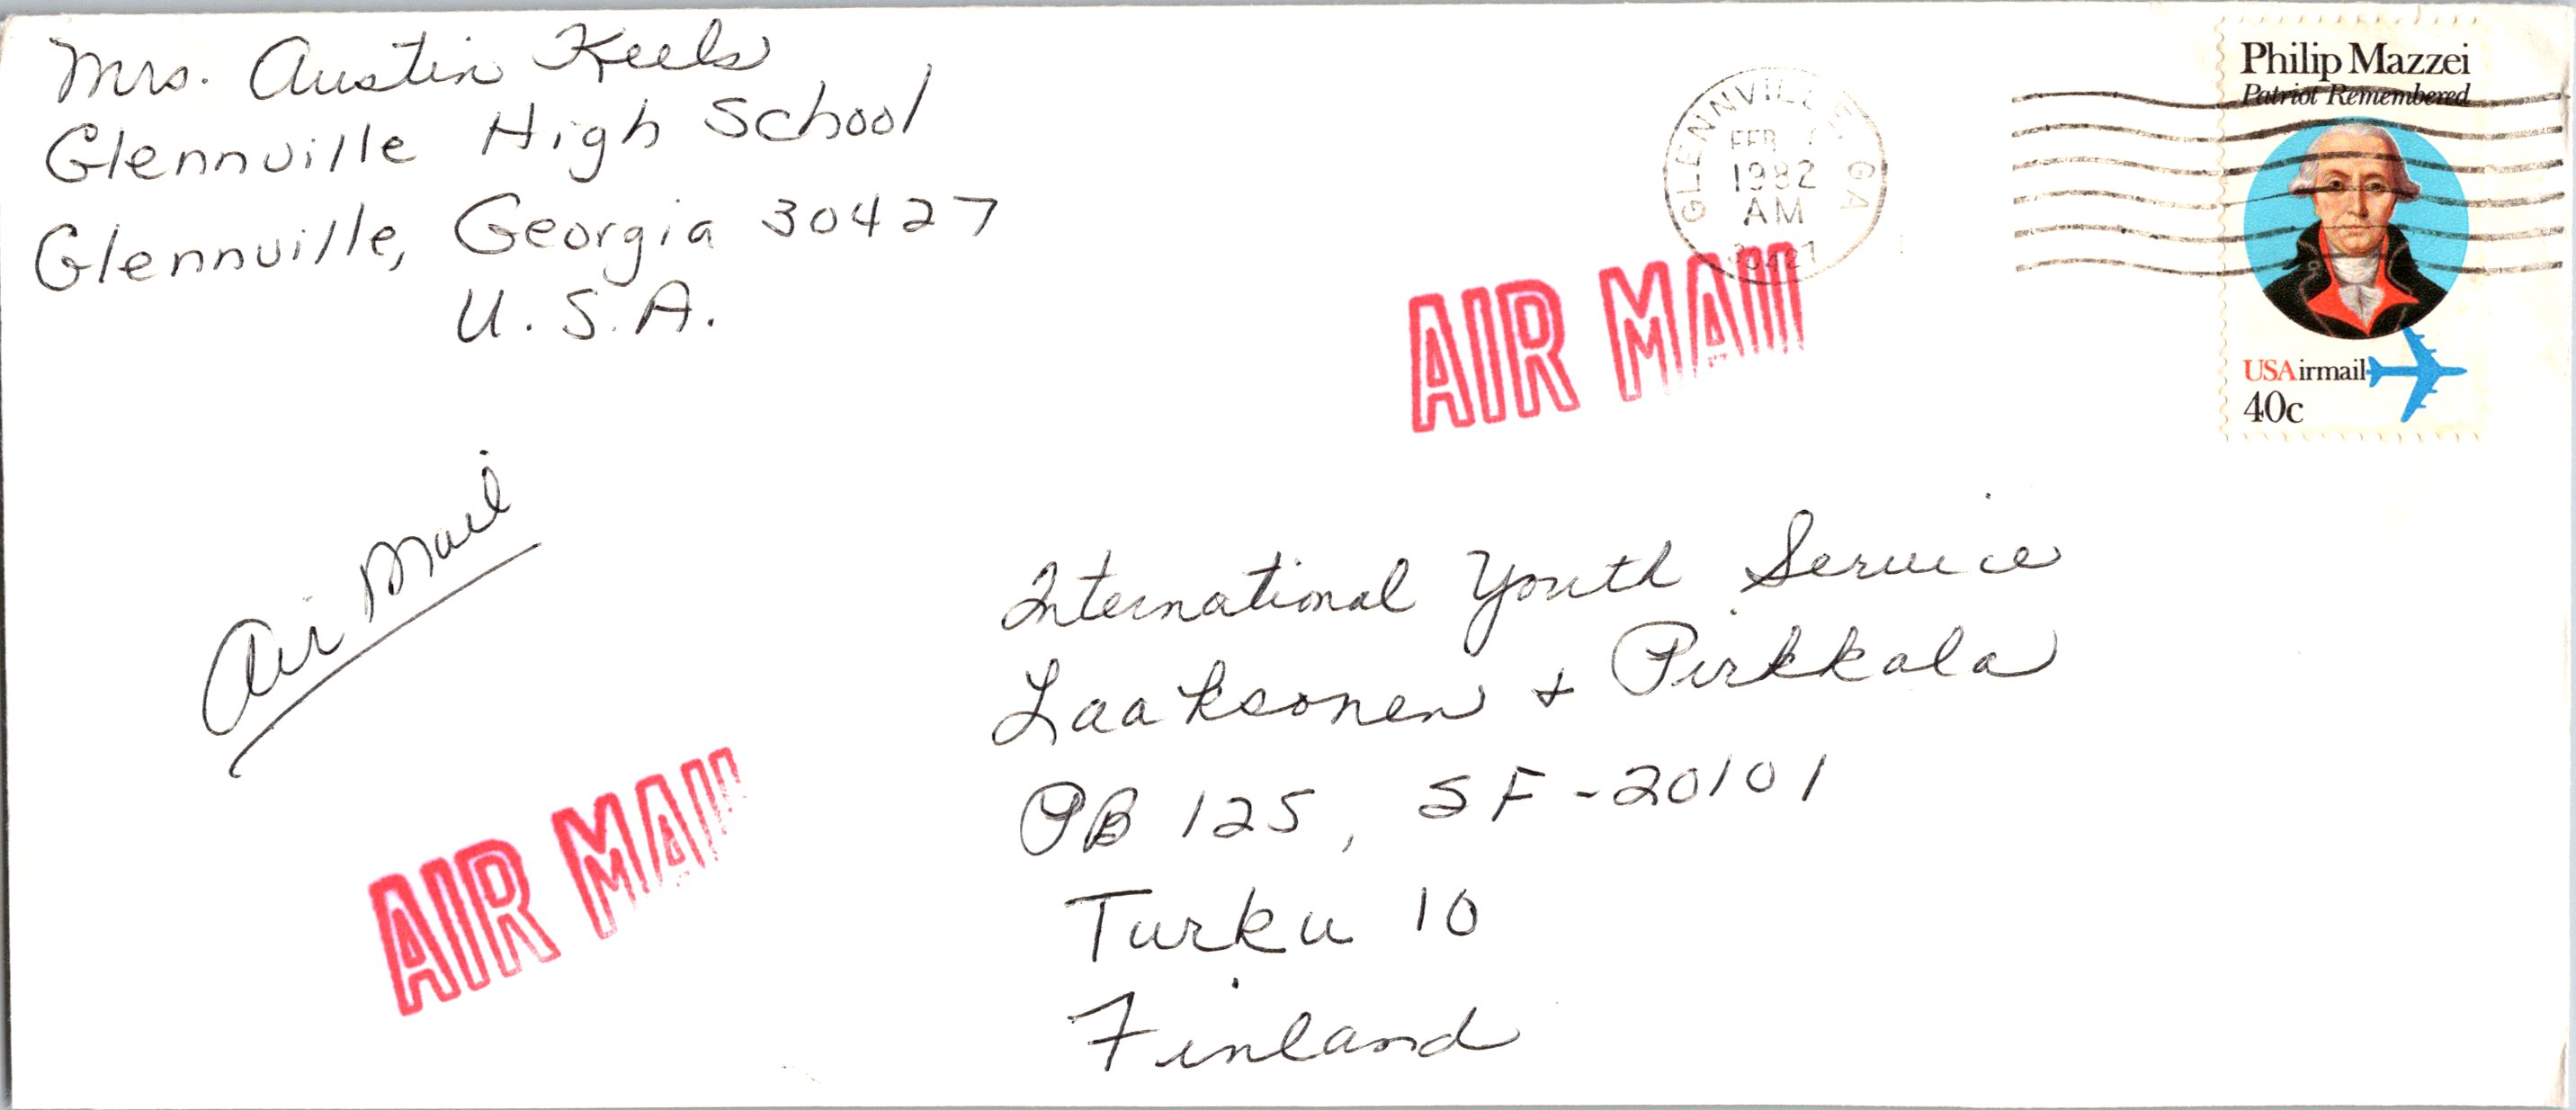 Mrs. Austin Keels
Glennville High School
Glennville, Georgia 30427
U.S.A.
GLENNVILLE, GA
FEB
1982
AM
30427
Philip Mazzei
Patriot Remembered
USAirmail
40c
AIR MAIL
Air Mail
AIR MAIL
International Youth Service
Laaksonen + Pirkkala
PB 125, SF-20101
Turku 10
Finland